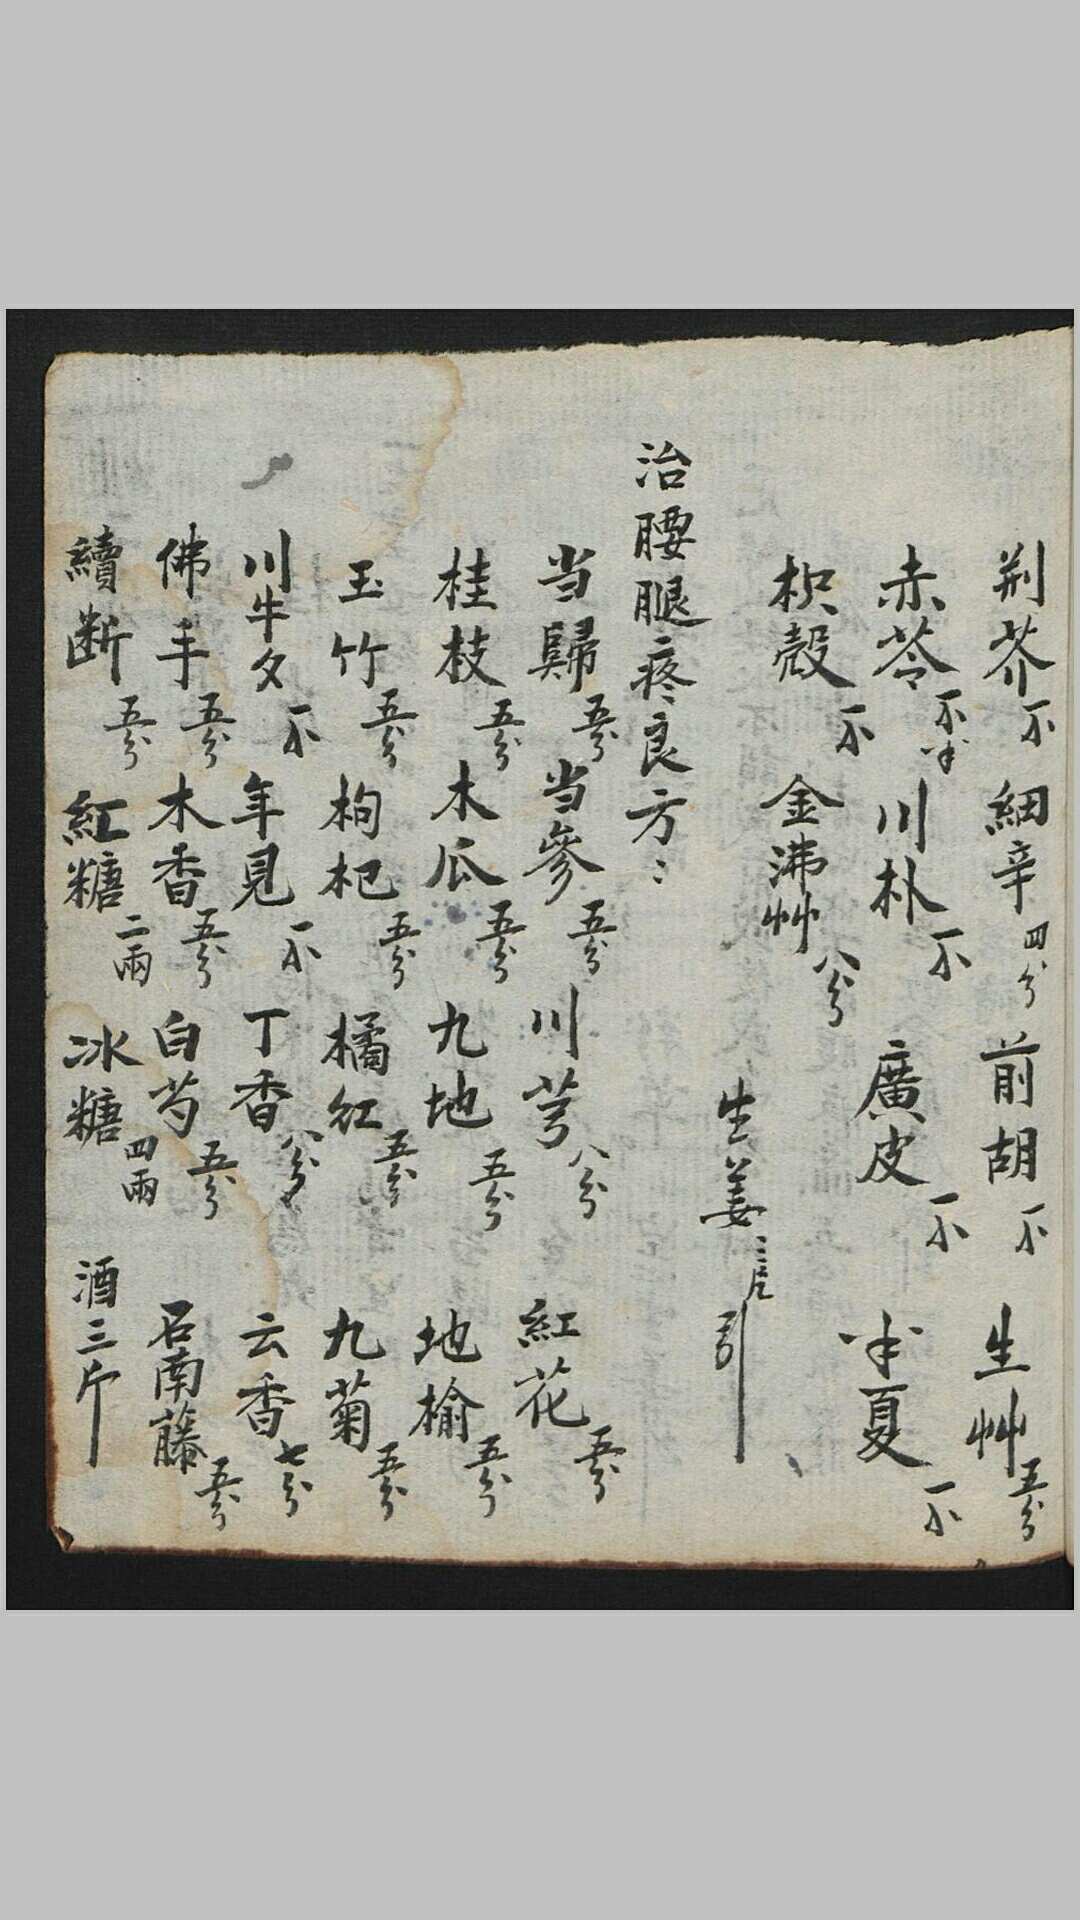 荆芥一个 細辛四分 前胡一个 生艸五分
赤苓一个半 川朴一个 廣皮一个 半夏一个
枳殼一个 金沸艸八分
生姜三片引
治腰腿疼良方:
当歸五分 当參五分 川芎八分 紅花五分
桂枝五分 木瓜五分 九地五分 地榆五分
玉竹五分 枸杞五分 橘红五分 九菊五分
川牛夕一个 年見一个 丁香八分 云香七分
佛手五分 木香五分 白芍五分 石南藤五分
續断五分 紅糖二兩 冰糖四兩 酒三斤